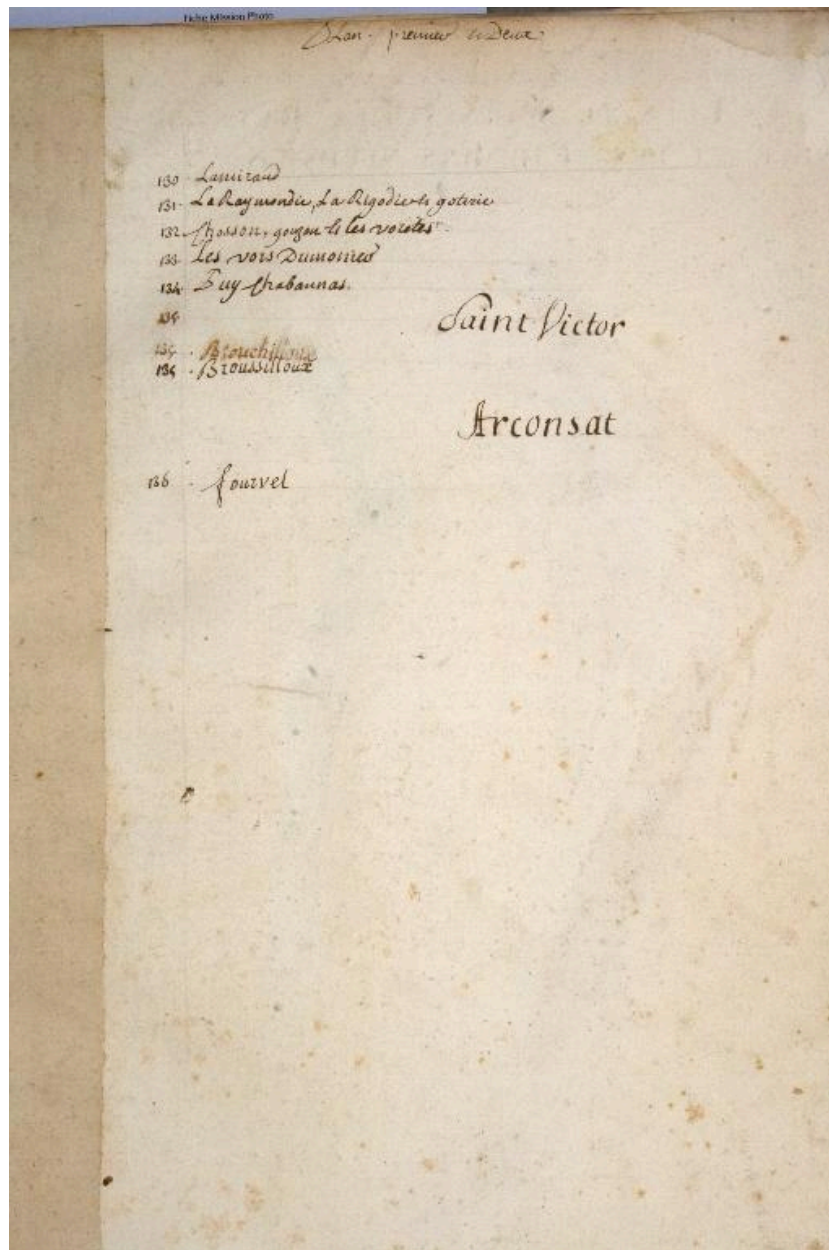 Fiche Mission Photo
Plan premier et Deux
130 Lamiraud
131 La Raymondie, La Rigodie et goterie
132 Chosson, gouzon et les voretes
133 Les vors Dumonied
134 Puy Chabannas.
135
Saint Victor
135 Brouchilloux
135 Broussilloux
Arconsat
136 fourvel